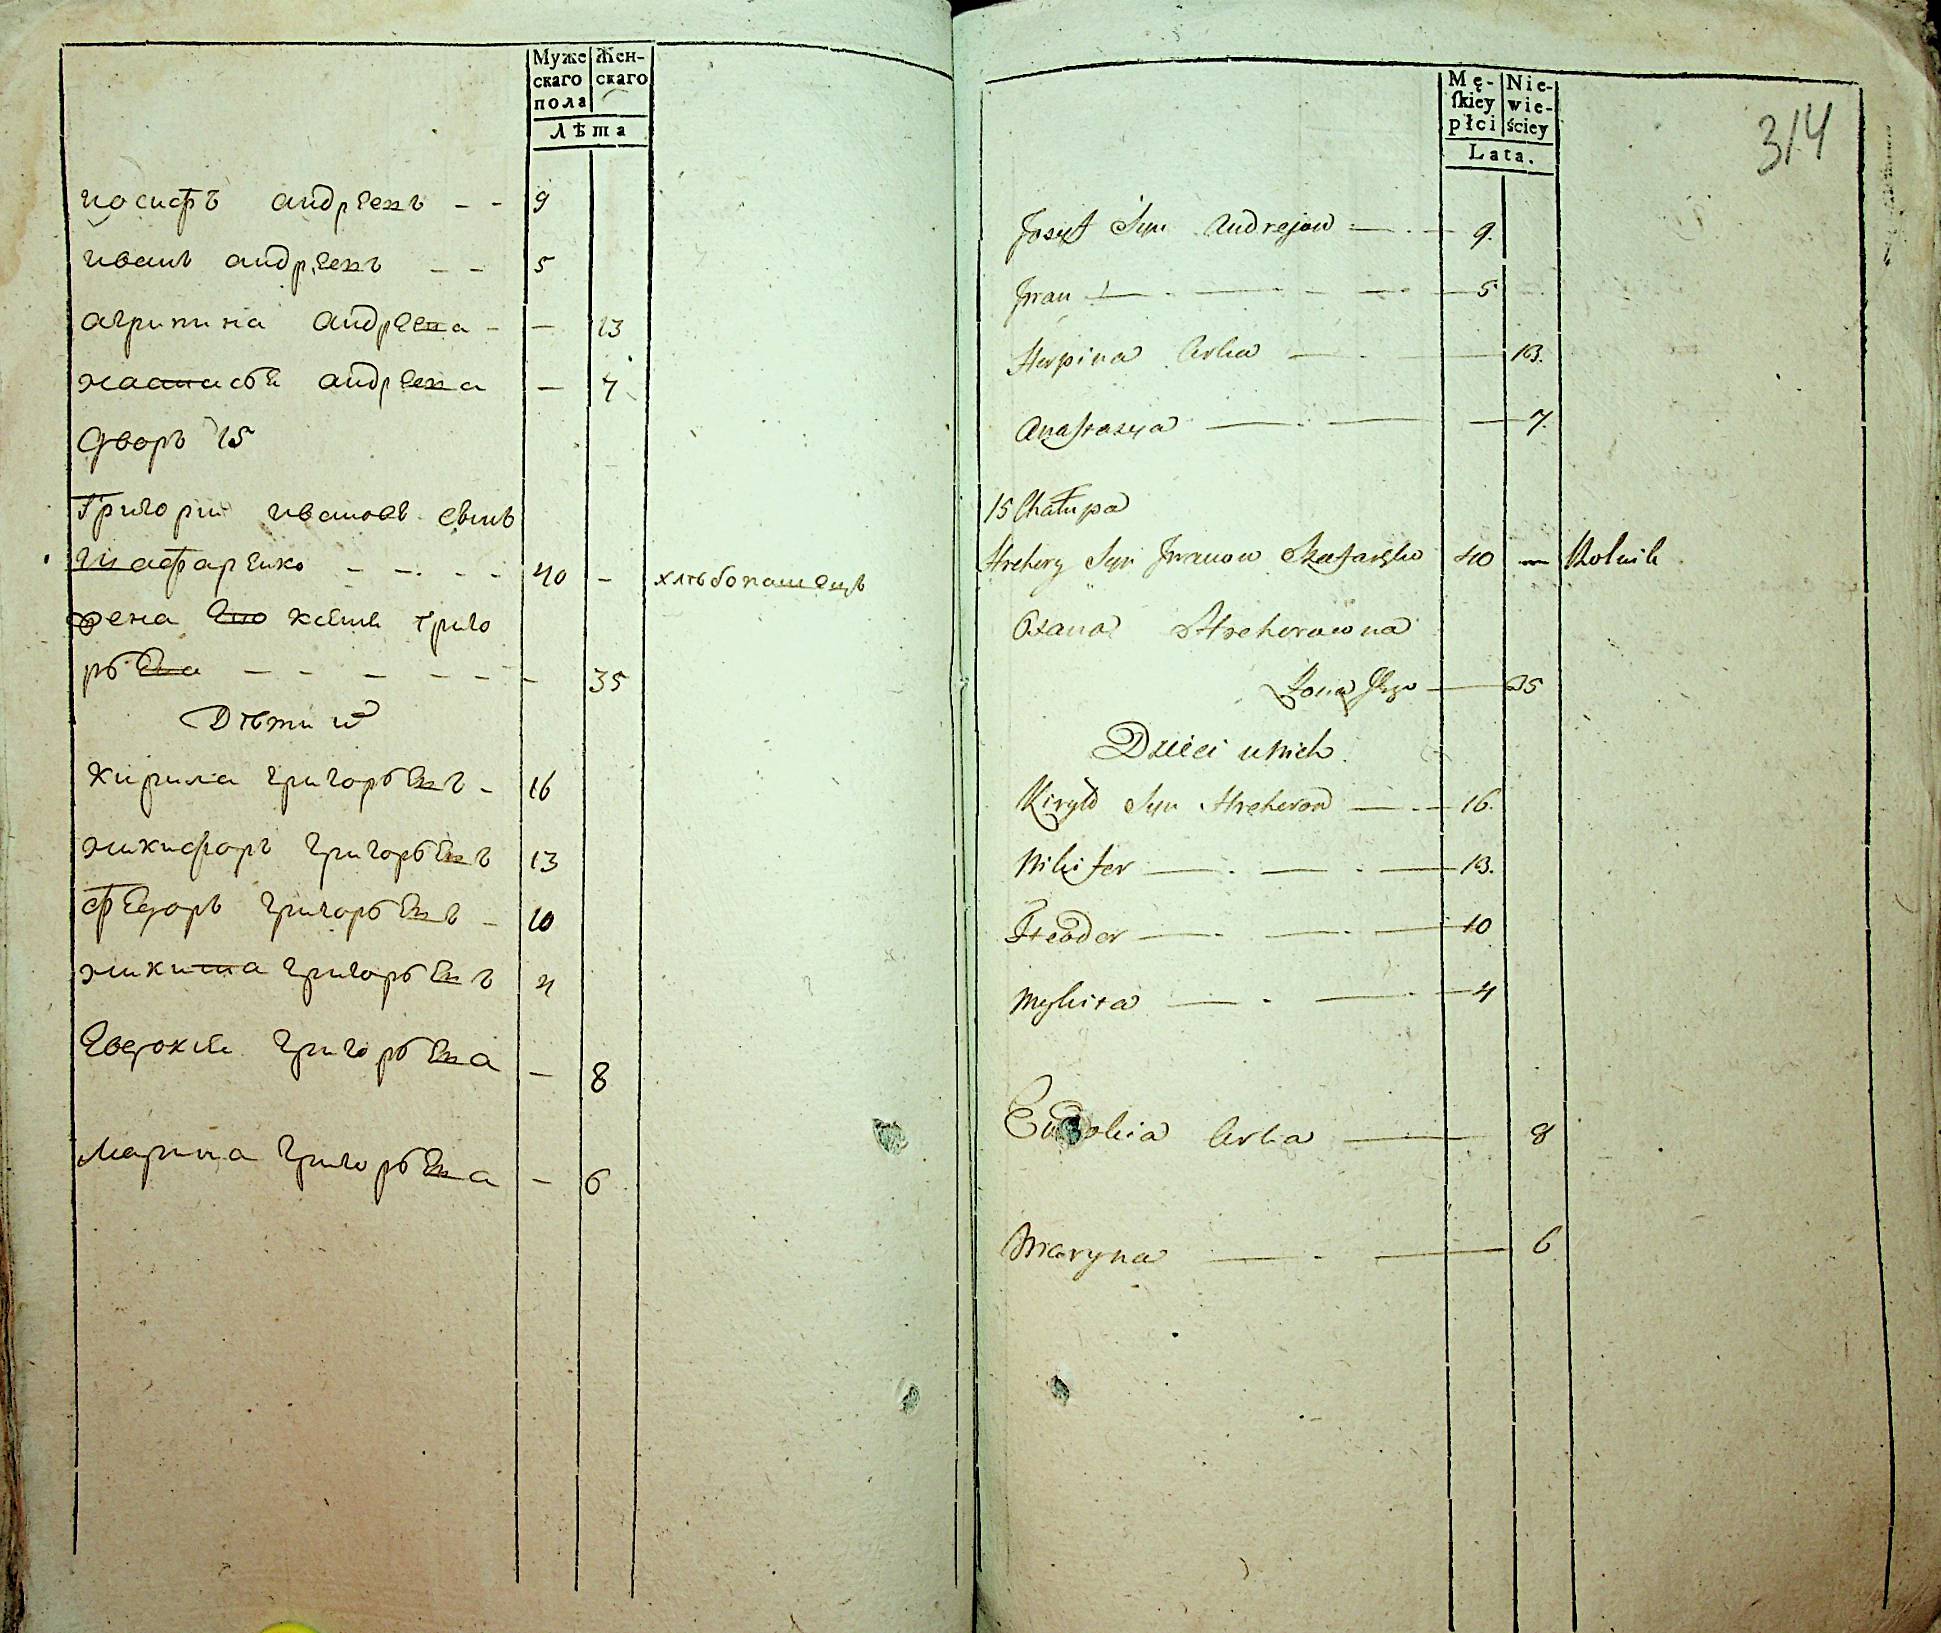 Муже
скаго
пола
Жен-
скаго
Лѣта
иосифъ андреевъ - - 9
иванъ андреевъ - - 5
агрипина андреева - - 13
настасѣя андреева - 7
Дворъ 15
Григорий ивановъ сынъ
Шафаренко - - - - 40 - хлѣбопашецъ
жена его ксения григо
рьева - - - - - - 35
Дѣти их
кирила григорьевъ - 16
никифоръ григорьевъ 13
федоръ григорьевъ - 10
никита григорьевъ 4
евдокия григорьева - 8
марина григорьева - 6
314
Mę-
ſkiey
płci
Nie-
wie-
ściey
Lata.
Jozef Syn Andrejow 9.
Jwan 5
Horpina Corka 13.
Anastazya 7.
15 Chałupa
Hrehory Syn Jwanow Szafarenko 40 — Rolnik
Oxana Hrehorowna
Zona Jego 35
Dzieci u nich.
Kiryło Syn Hrehorow 16.
Nikifer 13.
Fteodor 10
Mykita 4
Eudokia Corka 8
Maryna 6